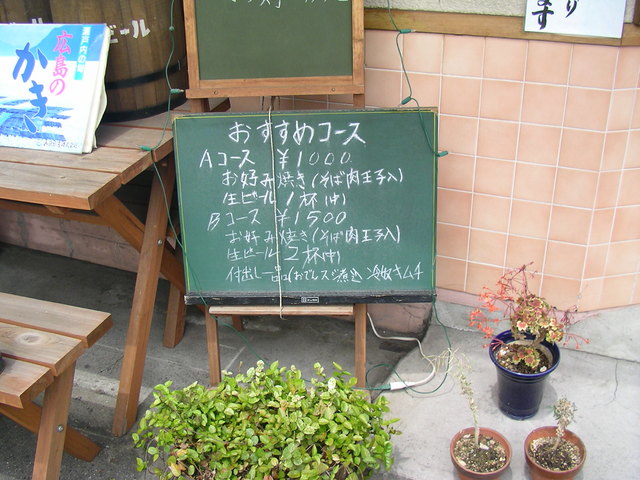 ビール
瀬戸内の味
広島の
かき
おすすめコース
Aコース ¥1000
お好み焼き(そば肉玉子入)
生ビール 1杯(中)
Bコース ¥1500
お好み焼き(そば肉玉子入)
生ビール 2杯(中)
付出し一品(おでんスジ煮込 冷奴キムチ
り
ます